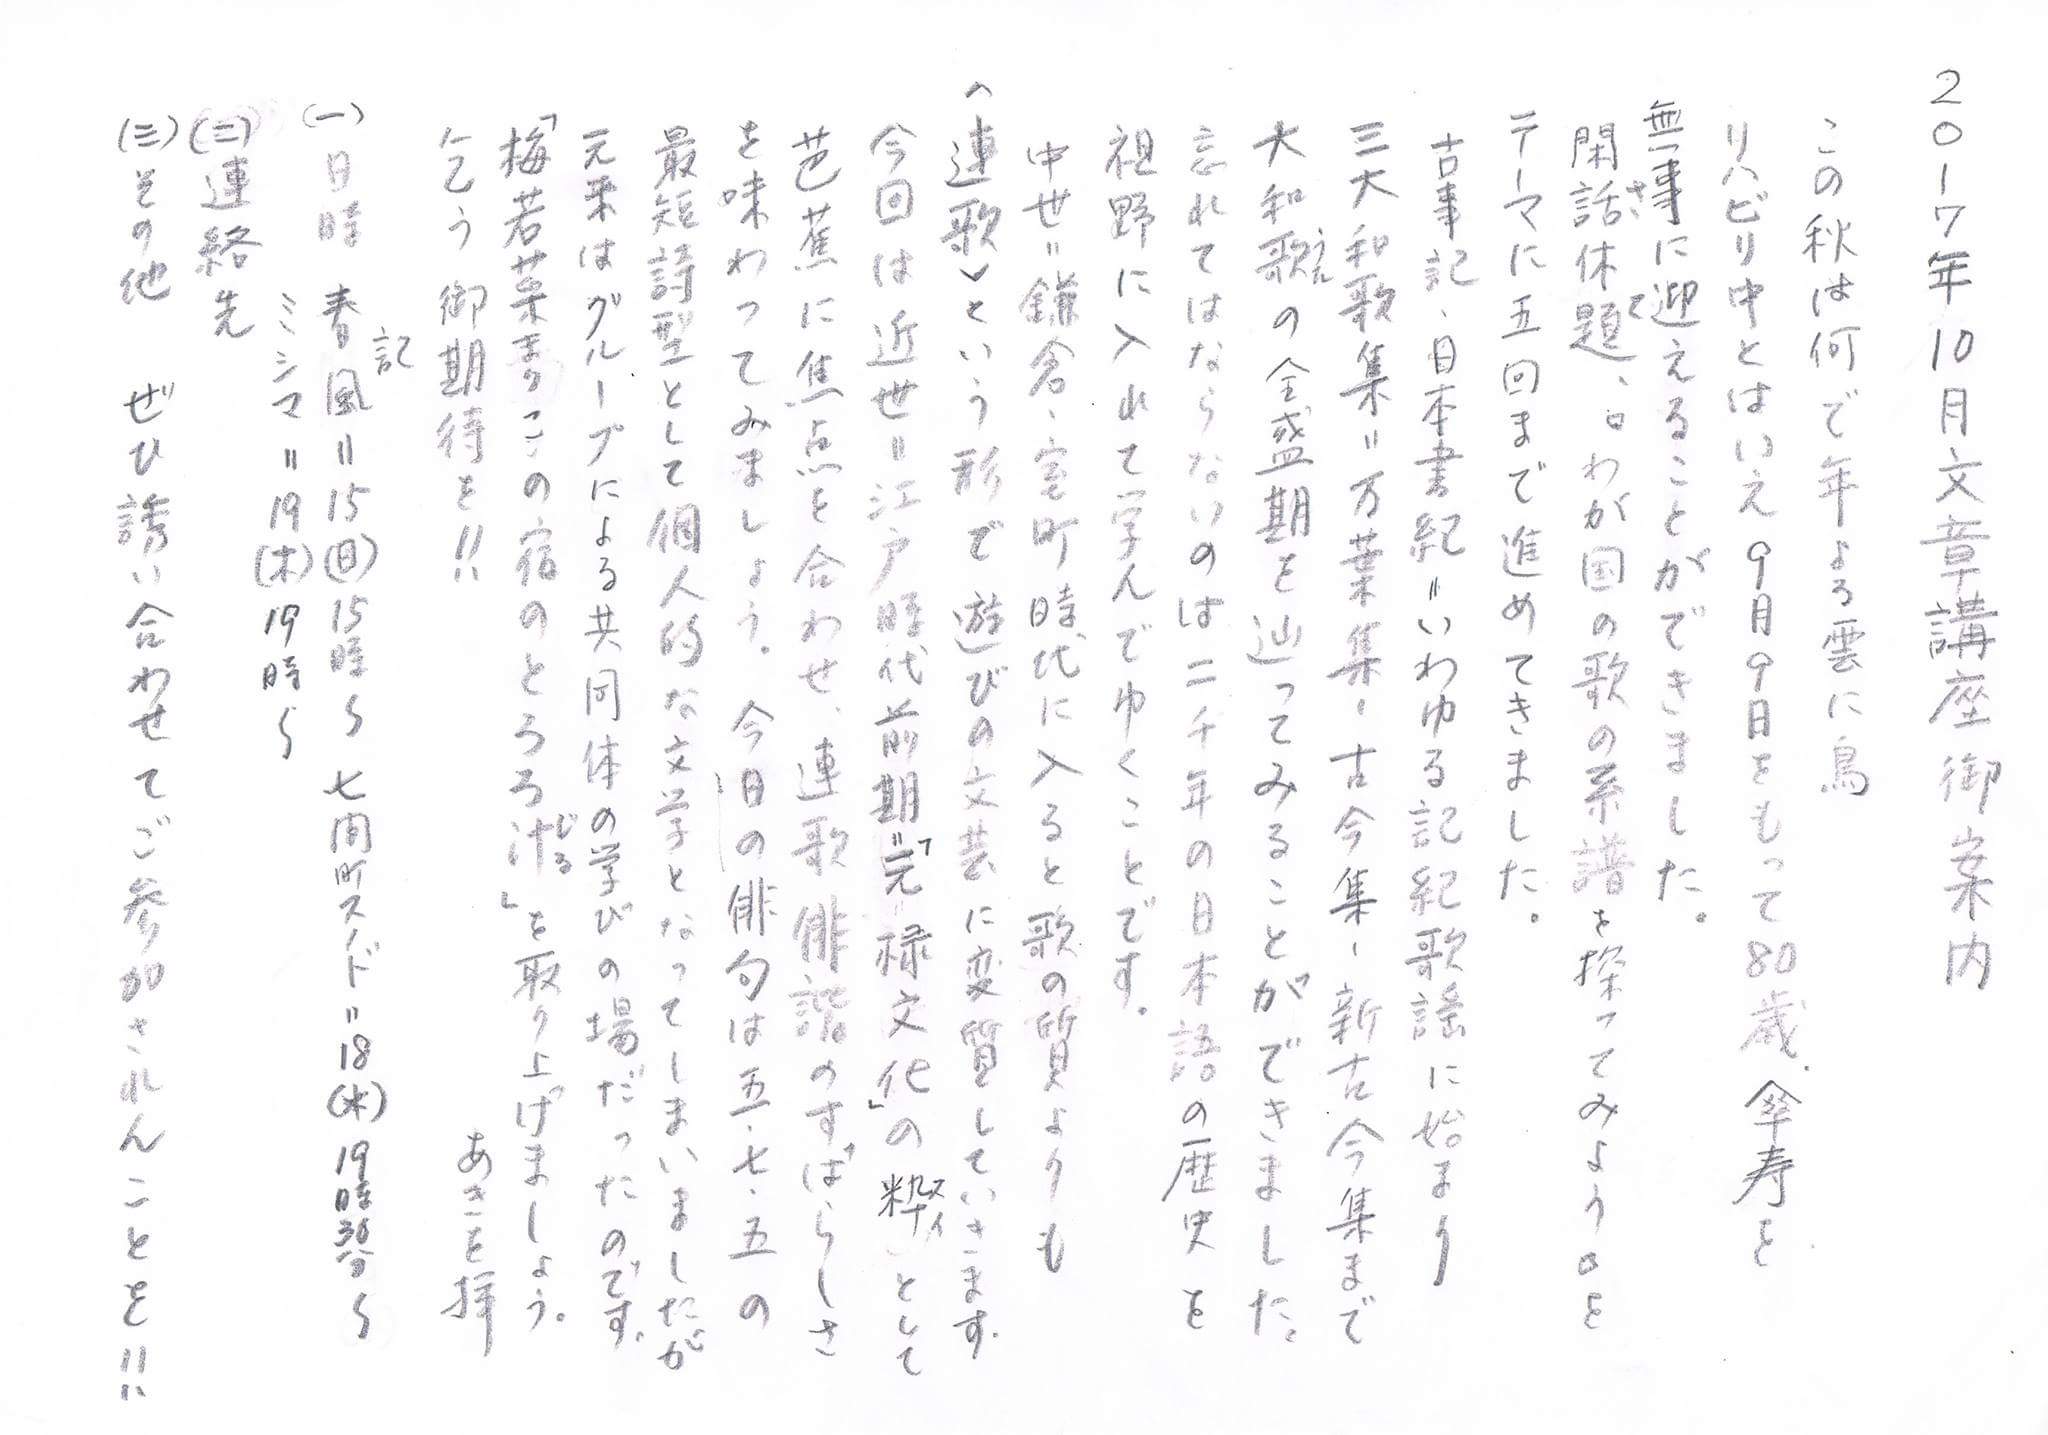 2017年10月文章講座御案内
この秋は何で年よる雲に鳥
リハビリ中とはいえ9月9日をもって80歳、傘寿を
無事に迎えることができました。
閑話休題、"わが国の歌の系譜を探ってみよう"を
テーマに五回まで進めてきました。
古事記、日本書紀=いわゆる記紀歌謡に始まり
三大和歌集=万葉集・古今集・新古今集まで
大和歌の全盛期を辿ってみることができました。
忘れてはならないのは二千年の日本語の歴史を
視野に入れて学んでゆくことです。
中世=鎌倉・室町時代に入ると歌の質よりも
〈連歌〉という形で遊びの文芸に変質していきます。
今回は近世=江戸時代前期="元禄文化"の粋スイとして
芭蕉に焦点を合わせ、連歌俳諧のすばらしさ
を味わってみましょう。今日の俳句は五・七・五の
最短詩型として個人的な文学となってしまいましたが
元来はグループによる共同体の学びの場だったのです。
「梅若菜まりこの宿のとろろ汁じる」を取り上げましょう。
乞う御期待を!!
あきを拝
記
(一)日時 春風=15(日)15時〜 七間町スノドカ=18(水)19時30分〜
ミシマ=19(木)19時〜
(二)連絡先
(三)その他 ぜひ誘い合わせてご参加されんことを!!